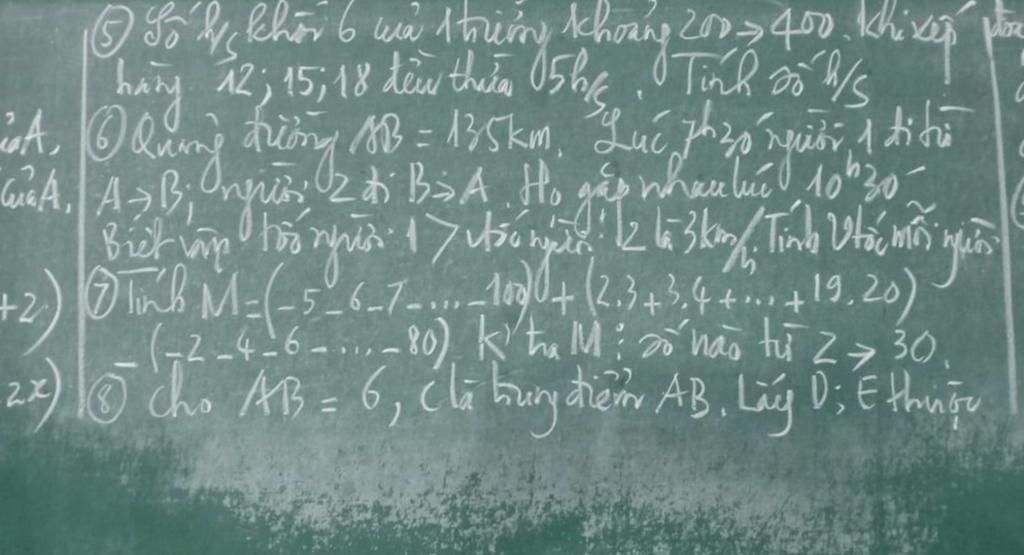 ⑤ Số h/s khối 6 của 1 trường khoảng 200→400. Khi xếp
hàng 12; 15; 18 đều thừa 5h/s. Tính số h/s
ủa A, ⑥ Quãng đường AB = 135km. Lúc 7h30' người 1 đi từ
của A, A→B; người 2 đi B→A. Họ gặp nhau lúc 10h30'
Biết vận tốc người 1 > vtốc người 2 là 3km/h. Tính Vtốc mỗi người
+2) ⑦ Tính M = (-5-6-7-....-100) + (2.3+3.4+...+19.20)
- (-2-4-6-....-80). K' tra M ⋮ số nào từ 2→30.
2x) ⑧ Cho AB = 6, C là trung điểm AB. Lấy D; E thuộc